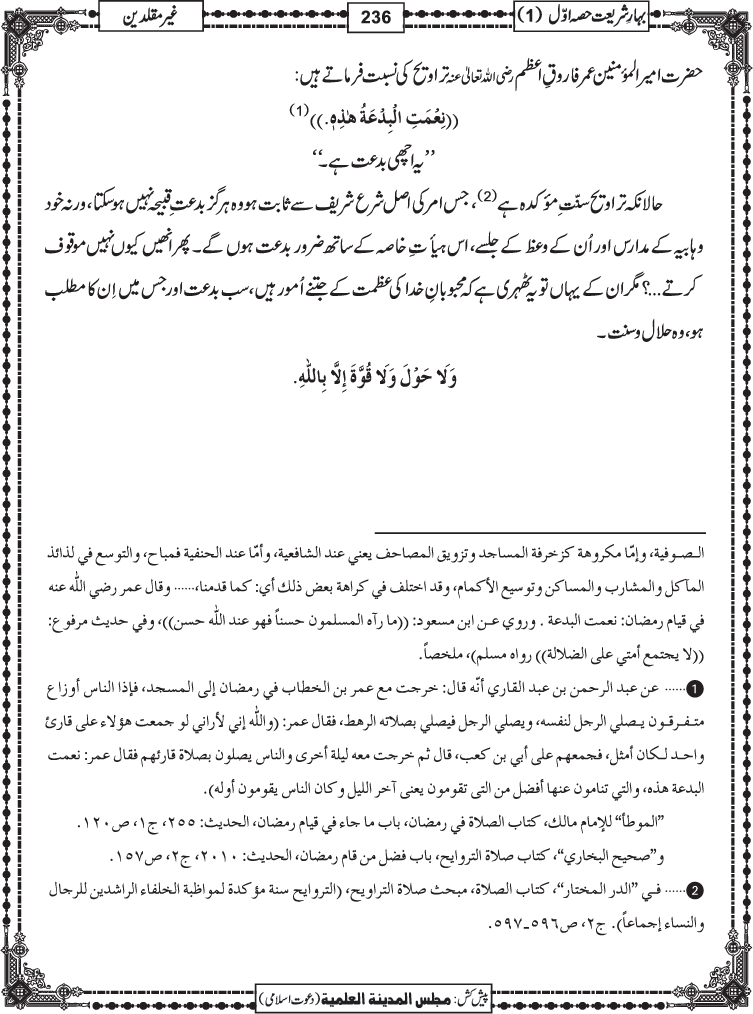 بہارِ شریعت حصہ اوّل (1)
236
غیر مقلدین
حضرت امیر المؤمنین عمر فاروقِ اعظم رضی اللہ تعالیٰ عنہ تراویح کی نسبت فرماتے ہیں:
((نِعْمَتِ الْبِدْعَةُ هٰذِهٖ.))(1)
’’یہ اچھی بدعت ہے۔‘‘
حالانکہ تراویح سنّتِ مؤکدہ ہے(2)، جس امر کی اصل شرع شریف سے ثابت ہو وہ ہرگز بدعتِ قبیحہ نہیں ہوسکتا، ورنہ خود
وہابیہ کے مدارس اور اُن کے وعظ کے جلسے، اس ہیأتِ خاصہ کے ساتھ ضرور بدعت ہوں گے۔ پھر انھیں کیوں نہیں موقوف
کرتے...؟ مگر ان کے یہاں تو یہ ٹھہری ہے کہ محبوبانِ خدا کی عظمت کے جتنے اُمور ہیں، سب بدعت اور جس میں اِن کا مطلب
ہو، وہ حلال و سنت۔
وَلَا حَوْلَ وَلَا قُوَّةَ إِلَّا بِاللّٰهِ.
الـصـوفية، وإمّا مكروهة كزخرفة المساجد وتزويق المصاحف يعني عند الشافعية، وأمّا عند الحنفية فمباح، والتوسع في لذائذ
المآكل والمشارب والمساكن وتوسيع الأكمام، وقد اختلف في كراهة بعض ذلك أي: كما قدمنا،...... وقال عمر رضي الله عنه
في قيام رمضان: نعمت البدعة . وروي عـن ابن مسعود: ((ما رآه المسلمون حسناً فهو عند الله حسن))، وفي حديث مرفوع:
((لا يجتمع أمتي على الضلالة)) رواه مسلم)، ملخصاً.
1...... عن عبد الرحمن بن عبد القاري أنّه قال: خرجت مع عمر بن الخطاب في رمضان إلى المسجد، فإذا الناس أوزاع
متـفـرقـون يـصلي الرجل لنفسه، ويصلي الرجل فيصلي بصلاته الرهط، فقال عمر: (والله إني لأراني لو جمعت هؤلاء على قارئ
واحـد لـكان أمثل، فجمعهم على أبي بن كعب، قال ثم خرجت معه ليلة أخرى والناس يصلون بصلاة قارئهم فقال عمر: نعمت
البدعة هذه، والتي تنامون عنها أفضل من التى تقومون يعنى آخر الليل وكان الناس يقومون أوله).
”الموطأ“ للإمام مالك، كتاب الصلاة في رمضان، باب ما جاء في قيام رمضان، الحديث: ٢٥٥، ج١، ص١٢٠.
و”صحيح البخاري“، كتاب صلاة التروايح، باب فضل من قام رمضان، الحديث: ٢٠١٠، ج٢، ص١٥٧.
2...... فـي ”الدر المختار“، كتاب الصلاة، مبحث صلاة التراويح، (التروايح سنة مؤكدة لمواظبة الخلفاء الراشدين للرجال
والنساء إجماعاً). ج٢، ص٥٩٦ـ٥٩٧.
پیش کش: مجلس المدينة العلمية (دعوت اسلامی)